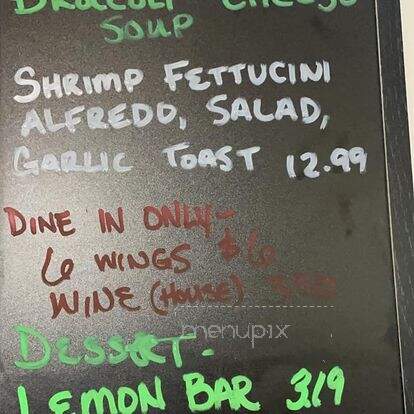 BROCCOLI CHEESE
SOUP
SHRIMP FETTUCINI
ALFREDO, SALAD,
GARLIC TOAST 12.99
DINE IN ONLY-
6 WINGS $6
WINE (HOUSE)
menupix
DESSERT-
LEMON BAR 3.19